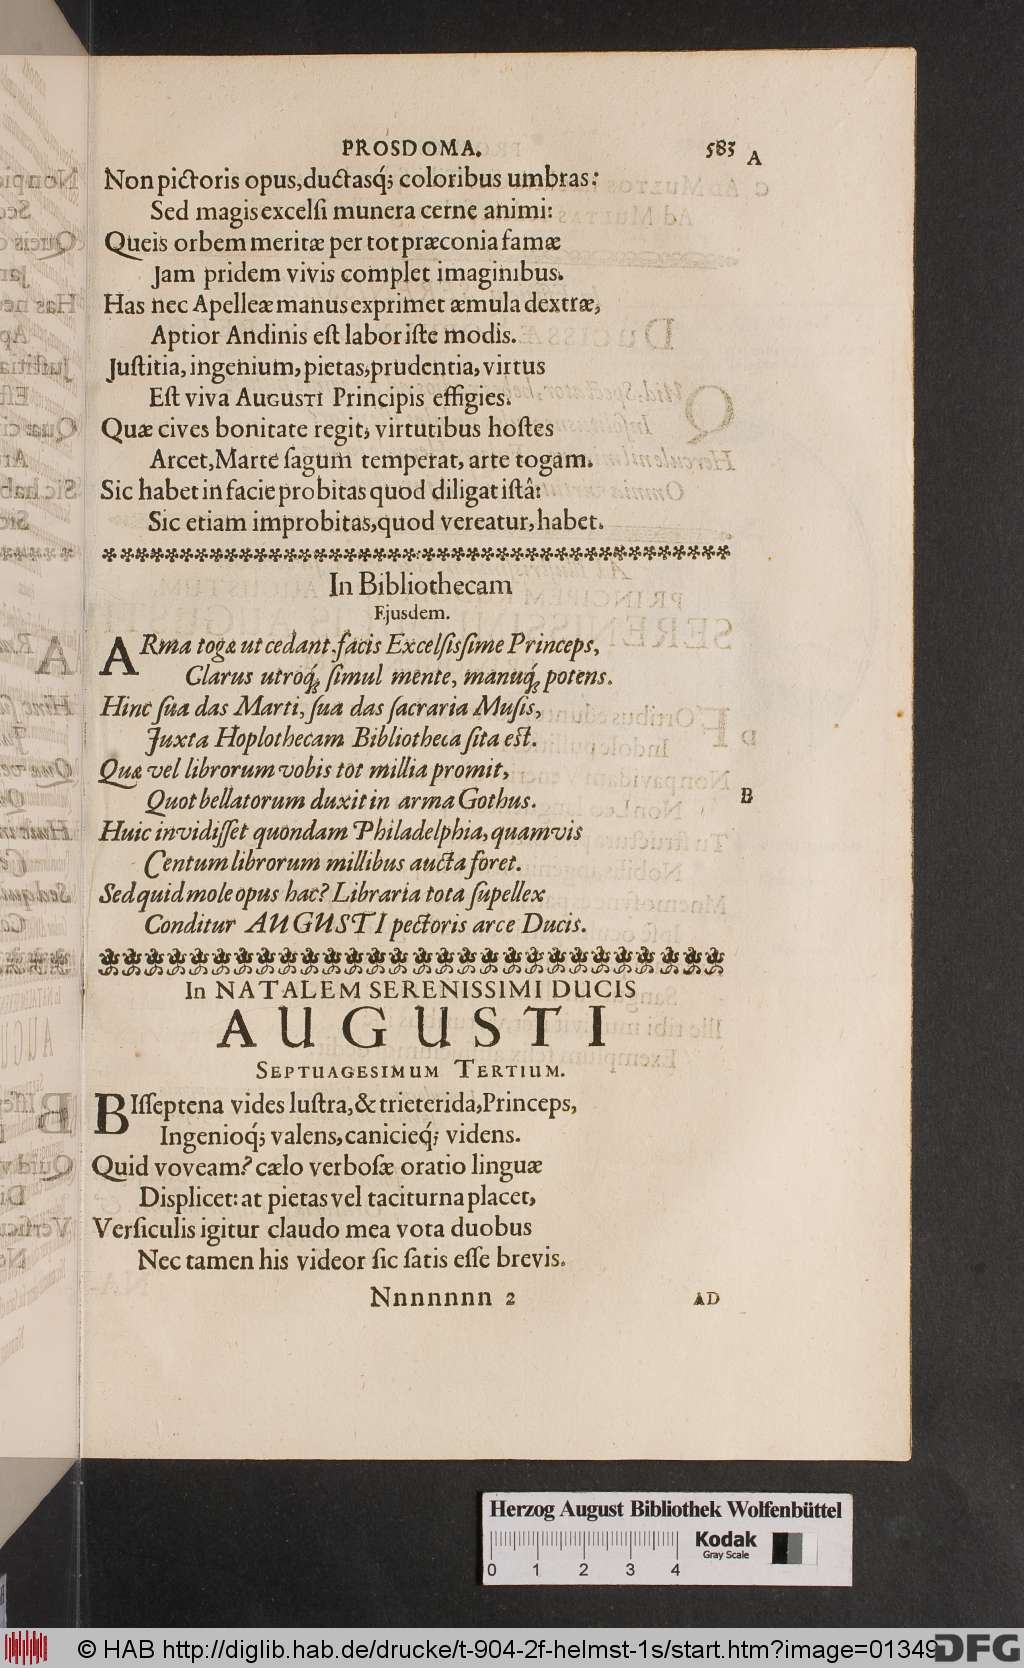 PROSDOMA. 583
A
Non pictoris opus, ductasq́; coloribus umbras:
Sed magis excelſi munera cerne animi:
Queis orbem meritæ per tot præconia famæ
Jam pridem vivis complet imaginibus.
Has nec Apelleæ manus exprimet æmula dextræ,
Aptior Andinis eſt labor iſte modis.
Juſtitia, ingenium, pietas, prudentia, virtus
Eſt viva AUGUSTI Principis effigies.
Quæ cives bonitate regit, virtutibus hoſtes
Arcet, Marte ſagum temperat, arte togam.
Sic habet in facie probitas quod diligat iſtâ:
Sic etiam improbitas, quod vereatur, habet.
In Bibliothecam
Ejusdem.
ARma togæ ut cedant, facis Excelſisſime Princeps,
Clarus utroq́ʒ ſimul mente, manuq́ʒ potens.
Hinc ſua das Marti, ſua das ſacraria Muſis,
Juxta Hoplothecam Bibliotheca ſita eſt.
Quæ vel librorum vobis tot millia promit,
Quot bellatorum duxit in arma Gothus.
B
Huic invidiſſet quondam Philadelphia, quamvis
Centum librorum millibus aucta foret.
Sed quid mole opus hac? Libraria tota ſupellex
Conditur AUGUSTI pectoris arce Ducis.
In NATALEM SERENISSIMI DUCIS
AUGUSTI
SEPTUAGESIMUM TERTIUM.
BIſſeptena vides luſtra, & trieterida, Princeps,
Ingenioq́; valens, canicieq́; videns.
Quid voveam? cælo verboſæ oratio linguæ
Displicet: at pietas vel taciturna placet,
Verſiculis igitur claudo mea vota duobus
Nec tamen his videor ſic ſatis eſſe brevis.
Nnnnnnn 2 AD
Herzog August Bibliothek Wolfenbüttel
Kodak
Gray Scale
0 1 2 3 4
© HAB http://diglib.hab.de/drucke/t-904-2f-helmst-1s/start.htm?image=01349
DFG